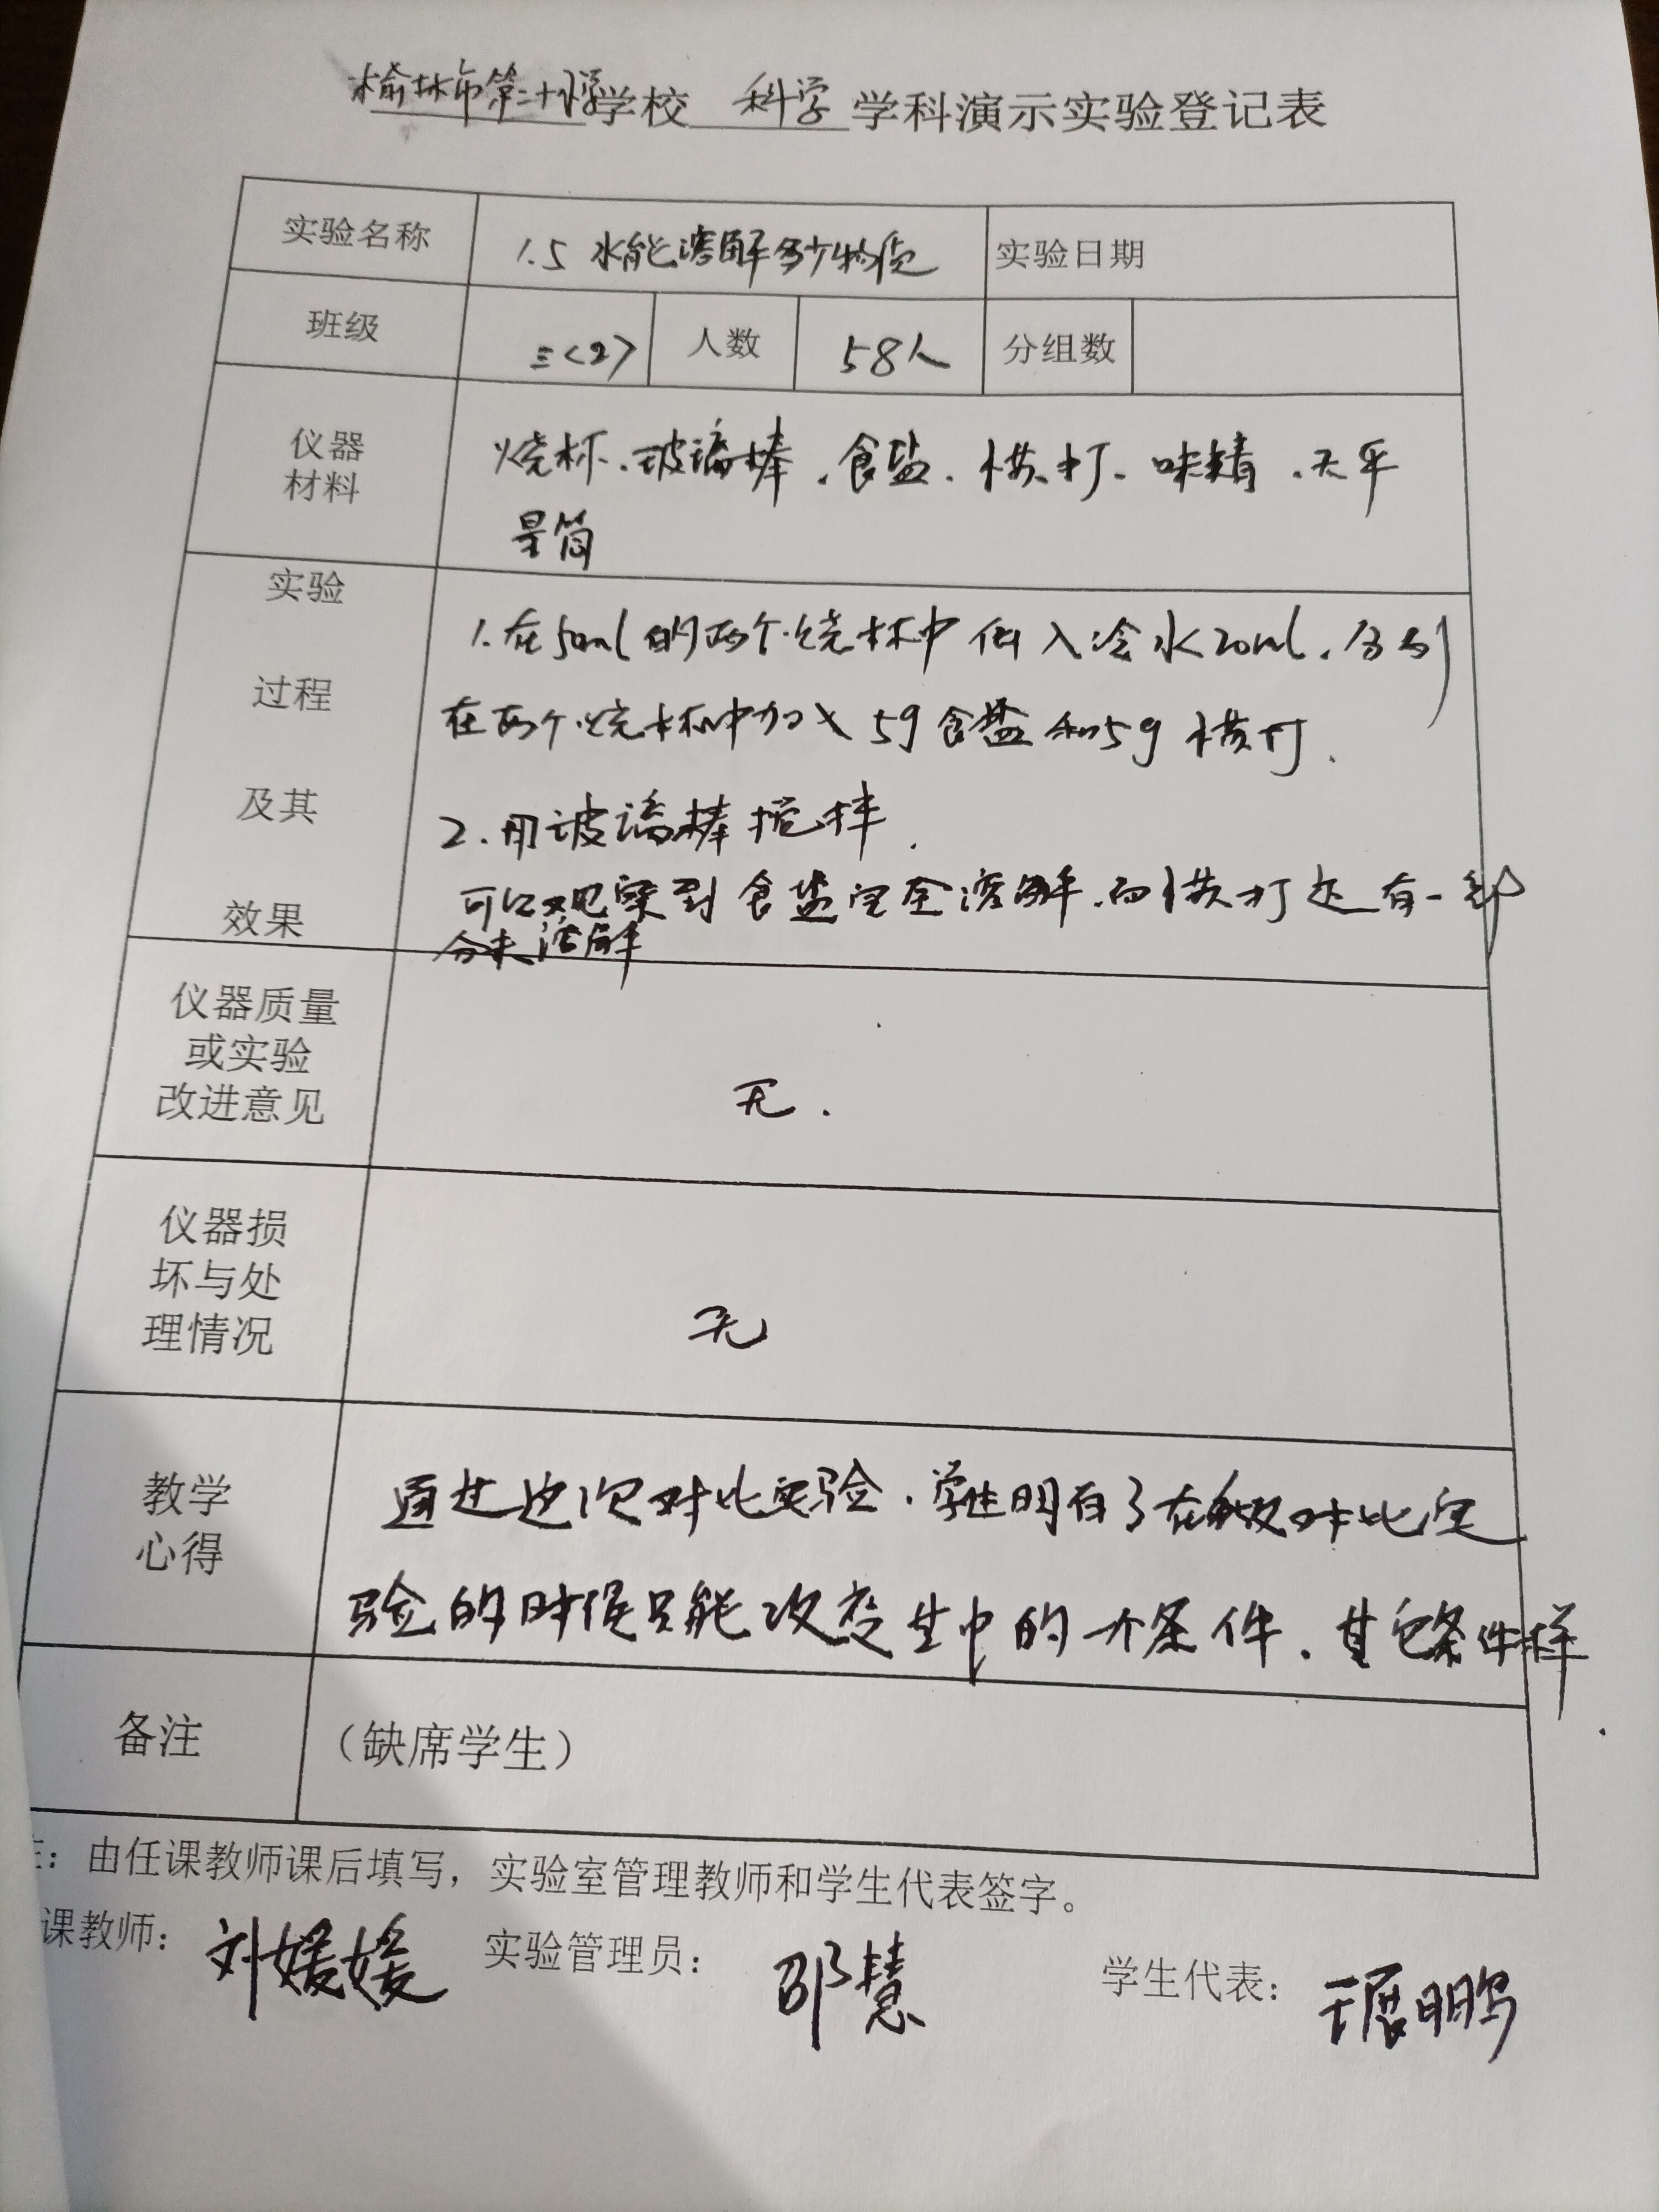 榆林市第二十小学校 科学 学科演示实验登记表
实验名称 1.5 水能溶解多少物质 实验日期
班级 三<2> 人数 58人 分组数
仪器
材料
烧杯、玻璃棒、食盐、味精、天平
量筒
实验
过程
及其
效果
1.在50ml的两个烧杯中倒入冷水20ml,分别
在两个烧杯中加入5g食盐和5g
2.用玻璃棒搅拌.
可以观察到食盐完全溶解,而还有一部
分未溶解
仪器质量
或实验
改进意见
无.
仪器损
坏与处
理情况
无
教学
心得
通过这次对比实验,学生明白了在做对比实
验的时候只能改变其中的一个条件,其它条件一样.
备注 (缺席学生)
注:由任课教师课后填写,实验室管理教师和学生代表签字。
课教师: 刘媛媛 实验管理员: 邵慧 学生代表: